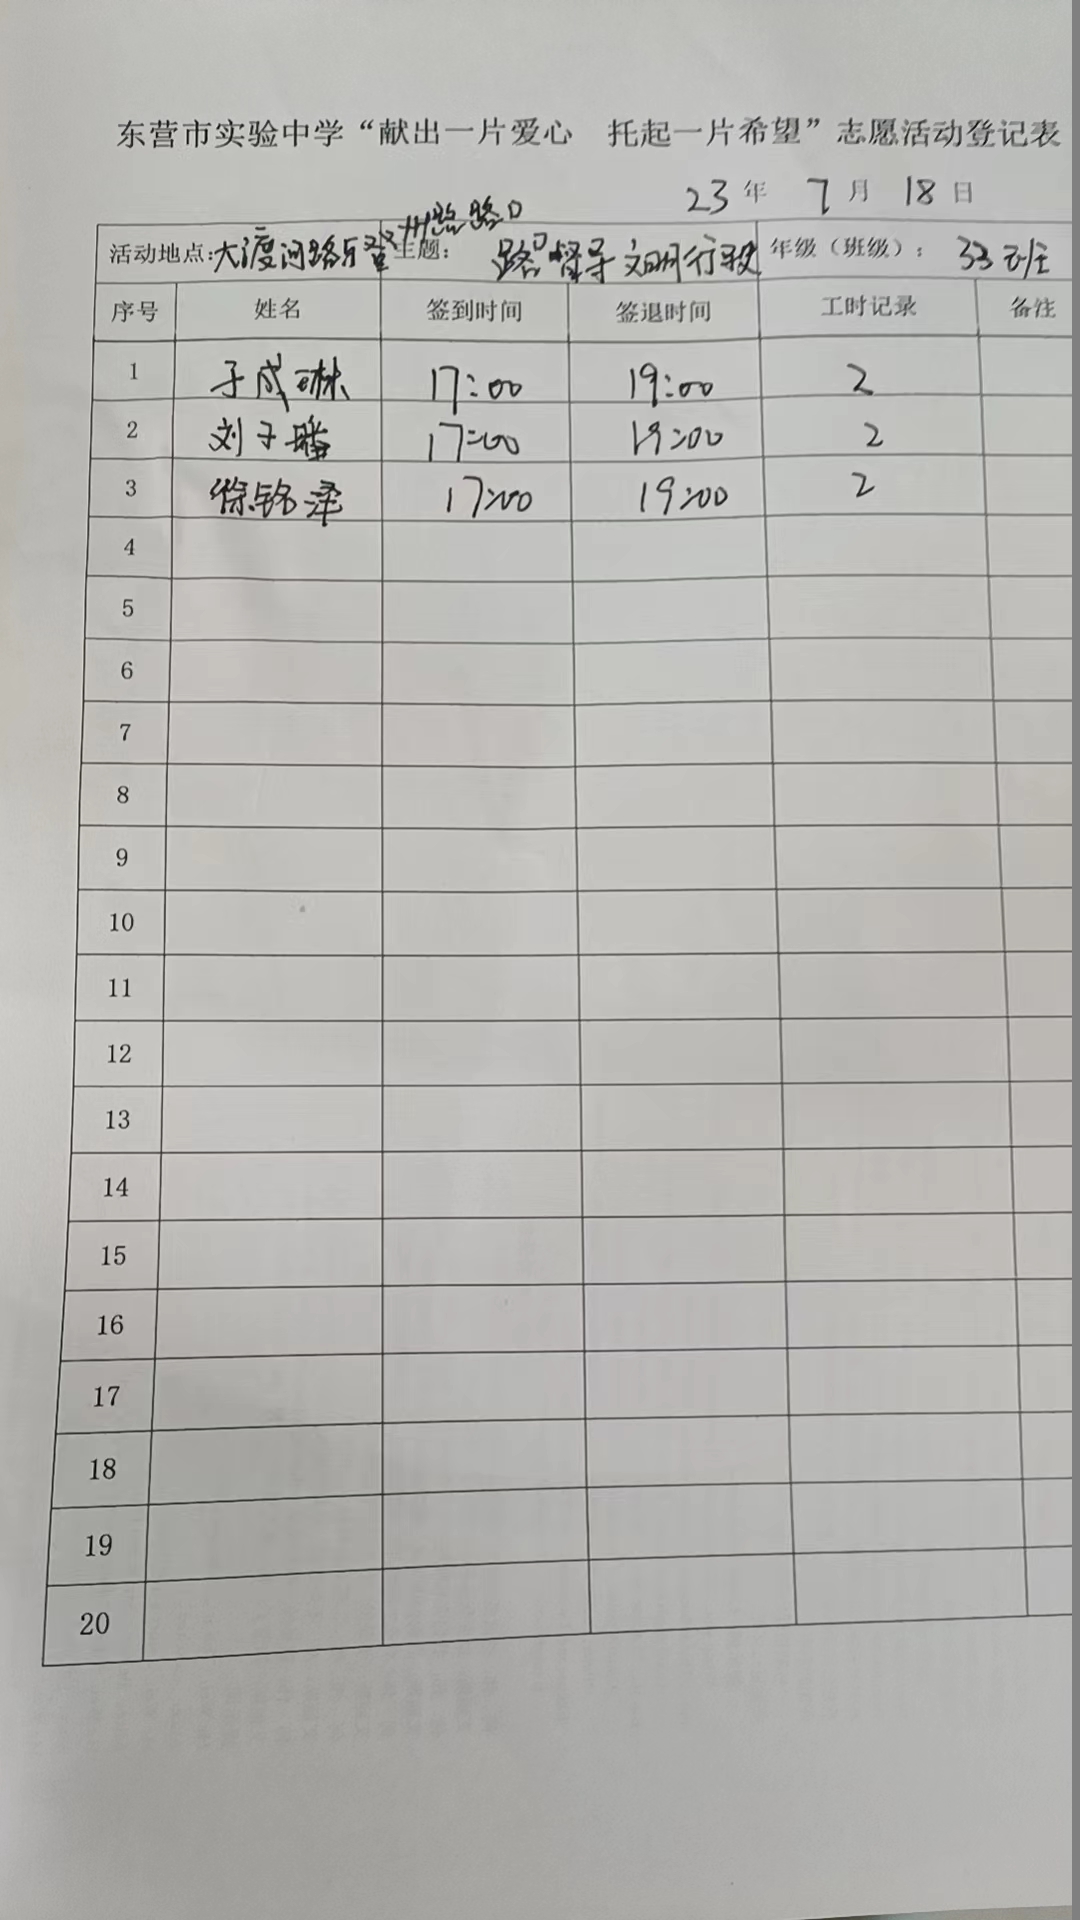 东营市实验中学“献出一片爱心 托起一片希望”志愿活动登记表
23 年 7 月 18 日
活动地点:大渡河路与登州路路口 主题: 路口督导文明行驶 年级（班级）: 33班
序号 姓名 签到时间 签退时间 工时记录 备注
1 于成琳 17:00 19:00 2
2 刘子 17:00 19:00 2
3 徐铭泽 17:00 19:00 2
4
5
6
7
8
9
10
11
12
13
14
15
16
17
18
19
20